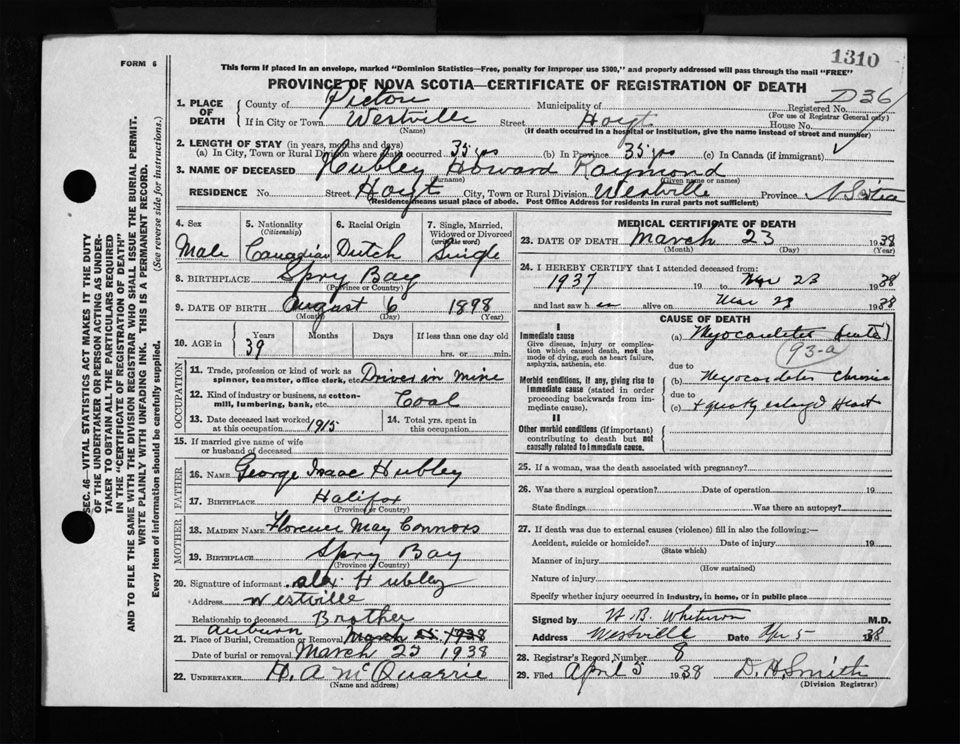 1310
FORM 6
This form if placed in an envelope, marked "Dominion Statistics—Free, penalty for improper use $300," and properly addressed will pass through the mail "FREE"
PROVINCE OF NOVA SCOTIA—CERTIFICATE OF REGISTRATION OF DEATH
D36
1. PLACE OF DEATH
County of Pictou Municipality of Registered No.
(For use of Registrar General only)
If in City or Town Westville Street Hoyt House No.
(Name) (If death occurred in a hospital or institution, give the name instead of street and number)
2. LENGTH OF STAY (in years, months and days)
(a) In City, Town or Rural Division where death occurred 35 yrs (b) In Province 35 yrs (c) In Canada (if immigrant)
3. NAME OF DECEASED Hubley Howard Raymond
(Surname) (Given name or names)
RESIDENCE No. Street Hoyt City, Town or Rural Division Westville Province N Scotia
(Residence means usual place of abode. Post Office Address for residents in rural parts not sufficient)
4. Sex Male
5. Nationality (Citizenship) Canadian
6. Racial Origin Dutch
7. Single, Married, Widowed or Divorced (write the word) Single
8. BIRTHPLACE Spry Bay
(Province or Country)
9. DATE OF BIRTH August 6 1898
(Month) (Day) (Year)
10. AGE in Years 39 Months Days If less than one day old hrs. or min.
OCCUPATION
11. Trade, profession or kind of work as spinner, teamster, office clerk, etc. Driver in mine
12. Kind of industry or business, as cotton-mill, lumbering, bank, etc. Coal
13. Date deceased last worked at this occupation 1915
14. Total yrs. spent in this occupation
15. If married give name of wife or husband of deceased
FATHER
16. NAME George Isaac Hubley
17. BIRTHPLACE Halifax
(Province or Country)
MOTHER
18. MAIDEN NAME Florence May Connors
19. BIRTHPLACE Spry Bay
(Province or Country)
20. Signature of informant Alex Hubley
Address Westville
Relationship to deceased Brother
21. Place of Burial, Cremation or Removal Auburn March 25 1938
Date of burial or removal March 25 1938
22. UNDERTAKER H. A McQuarrie
(Name and address)
MEDICAL CERTIFICATE OF DEATH
23. DATE OF DEATH March 23 1938
(Month) (Day) (Year)
24. I HEREBY CERTIFY that I attended deceased from:
1937 19 to Mar 23 1938
and last saw h im alive on Mar 23 1938
CAUSE OF DEATH
I
Immediate cause
Give disease, injury or complication which caused death, not the mode of dying, such as heart failure, asphyxia, asthenia, etc.
(a) Myocarditis (acute)
93-a
due to
Morbid conditions, if any, giving rise to immediate cause (stated in order proceeding backwards from immediate cause).
(b) Myocarditis Chronic
due to
(c) + greatly enlarged Heart
II
Other morbid conditions (if important) contributing to death but not causally related to immediate cause.
25. If a woman, was the death associated with pregnancy?
26. Was there a surgical operation? Date of operation 19
State findings Was there an autopsy?
27. If death was due to external causes (violence) fill in also the following:—
Accident, suicide or homicide? Date of injury 19
(State which)
Manner of injury
(How sustained)
Nature of injury
Specify whether injury occurred in industry, in home, or in public place
Signed by M.D.
Address Westville Date Apr 5 1938
28. Registrar's Record Number 8
29. Filed April 5 1938 D. H. Smith
(Division Registrar)
SEC. 46—VITAL STATISTICS ACT MAKES IT THE DUTY
OF THE UNDERTAKER OR PERSON ACTING AS UNDER-
TAKER TO OBTAIN ALL THE PARTICULARS REQUIRED
IN THE "CERTIFICATE OF REGISTRATION OF DEATH"
AND TO FILE THE SAME WITH THE DIVISION REGISTRAR WHO SHALL ISSUE THE BURIAL PERMIT.
WRITE PLAINLY WITH UNFADING INK. THIS IS A PERMANENT RECORD.
Every item of information should be carefully supplied. (See reverse side for instructions.)